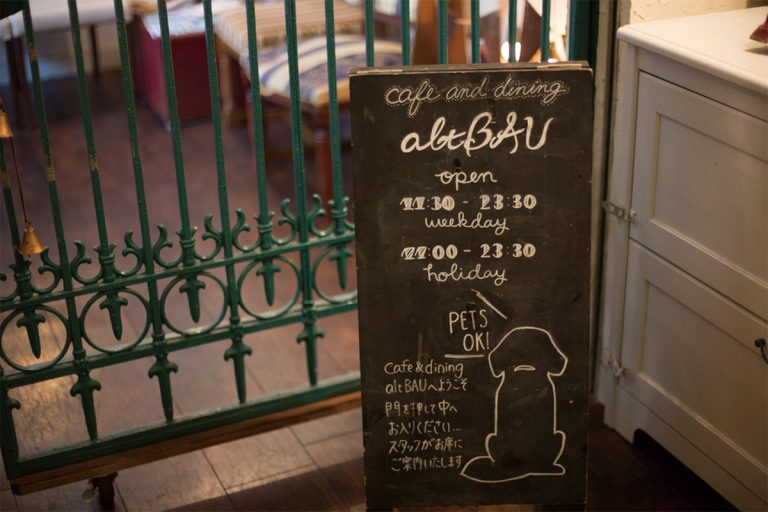 cafe and dining
altBAU
open
11:30 - 23:30
weekday
11:00 - 23:30
holiday
PETS
OK!
cafe&dining
altBAUへようこそ
門を押して中へ
お入りください...
スタッフがお席に
ご案内いたします